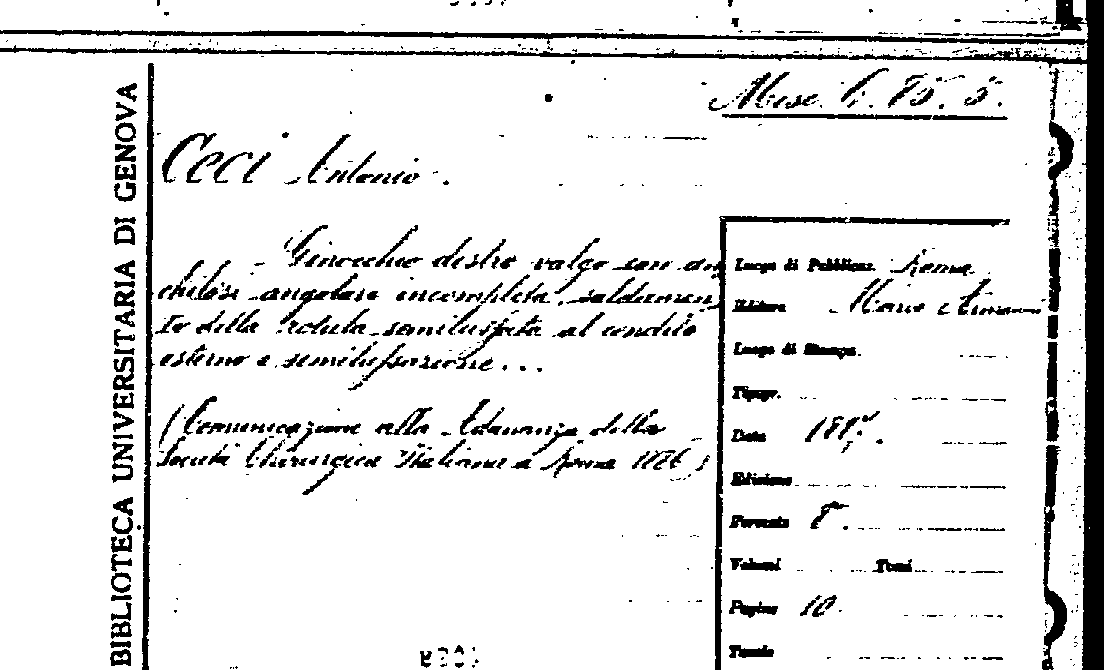 BIBLIOTECA UNIVERSITARIA DI GENOVA
Misc. b. 75. 5.
Ceci Antonio.
Ginocchio destro valgo con an
chilosi angolare incompleta, saldamen
to della rotula semilussata al condilo
esterno e semilussazione...
(Comunicazione alla Adunanza della
Società Chirurgica Italiana a Roma
Luogo di Pubblicaz. Roma
Editore Mario
Luogo di Stampa.
Tipogr.
Data
Edizione
Formato 8°.
Volumi Tomi
Pagine 10.
Tavole